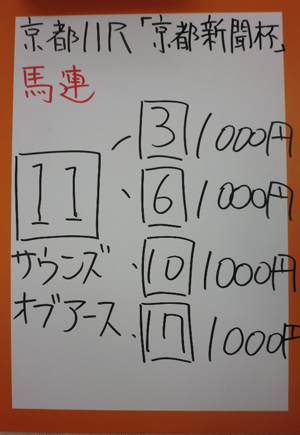 京都11R「京都新聞杯」
馬連
3 1000円
11 6 1000円
サウンズ 10 1000円
オブアース 17 1000円